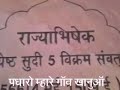 राज्याभिषेक
ष्ठ सुदी 5 विक्रम संवत
पधारो म्हारे गाँव खानुआँ